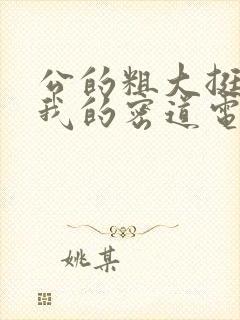 公的粗大挺
我的密道电
姚某